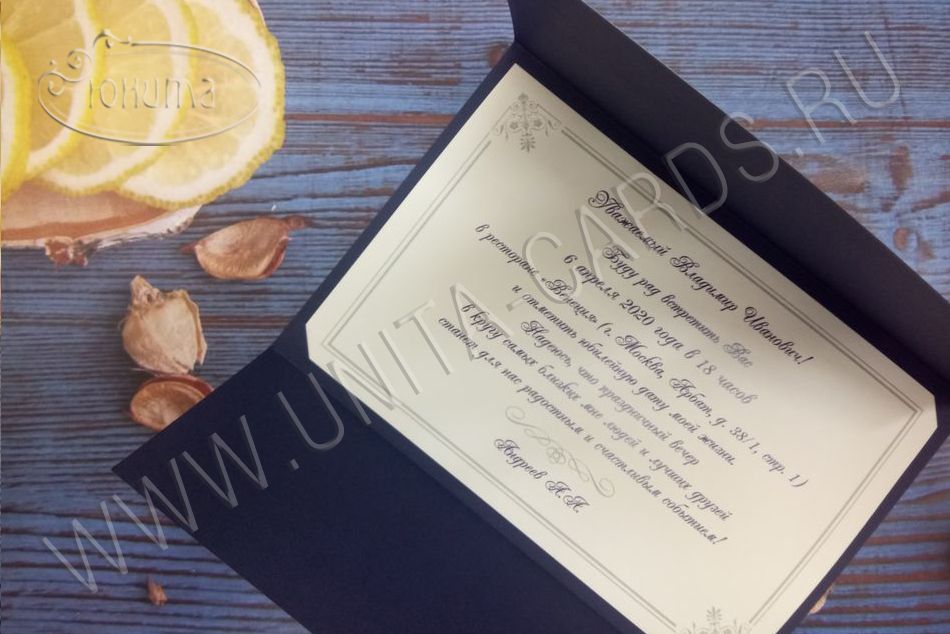 Юнита
WWW.UNITA-CARDS.RU
Уважаемый Владимир Иванович!
Буду рад встретить Вас
6 апреля 2020 года в 18 часов
в ресторане „Венеция“ (г. Москва, Арбат, д. 38/1, стр. 1)
и отметить юбилейную дату моей жизни.
Надеюсь, что праздничный вечер
в кругу самых близких мне людей и лучших друзей
станет для нас радостным и счастливым событием!
Андреев А.А.